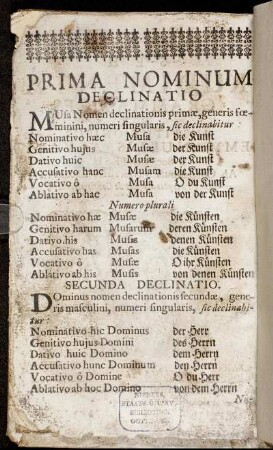 PRIMA NOMINUM
DECLINATIO
MUsa Nomen declinationis primæ, generis fœ-
minini, numeri singularis, sic declinabitur
Nominativo hæc Musa die Kunst
Genitivo hujus Musæ der Kunst
Dativo huic Musæ der Kunst
Accusativo hanc Musam die Kunst
Vocativo ô Musa O du Kunst
Ablativo ab hac Musa von der Kunst
Numero plurali
Nominativo hæ Musæ die Künsten
Genitivo harum Musarum deren Künsten
Dativo his Musis denen Künsten
Accusativo has Musas die Künsten
Vocativo ô Musæ O ihr Künsten
Ablativo ab his Musis von denen Künsten
SECUNDA DECLINATIO.
DOminus nomen declinationis secundæ, gene-
ris masculini, numeri singularis, sic declinabi-
tur
Nominativo hic Dominus der Herr
Genitivo hujus Domini des Herrn
Dativo huic Domino dem Herrn
Accusativo hunc Dominum den Herrn
Vocativo ô Domine O du Herr
Ablativo ab hoc Domino von dem Herrn